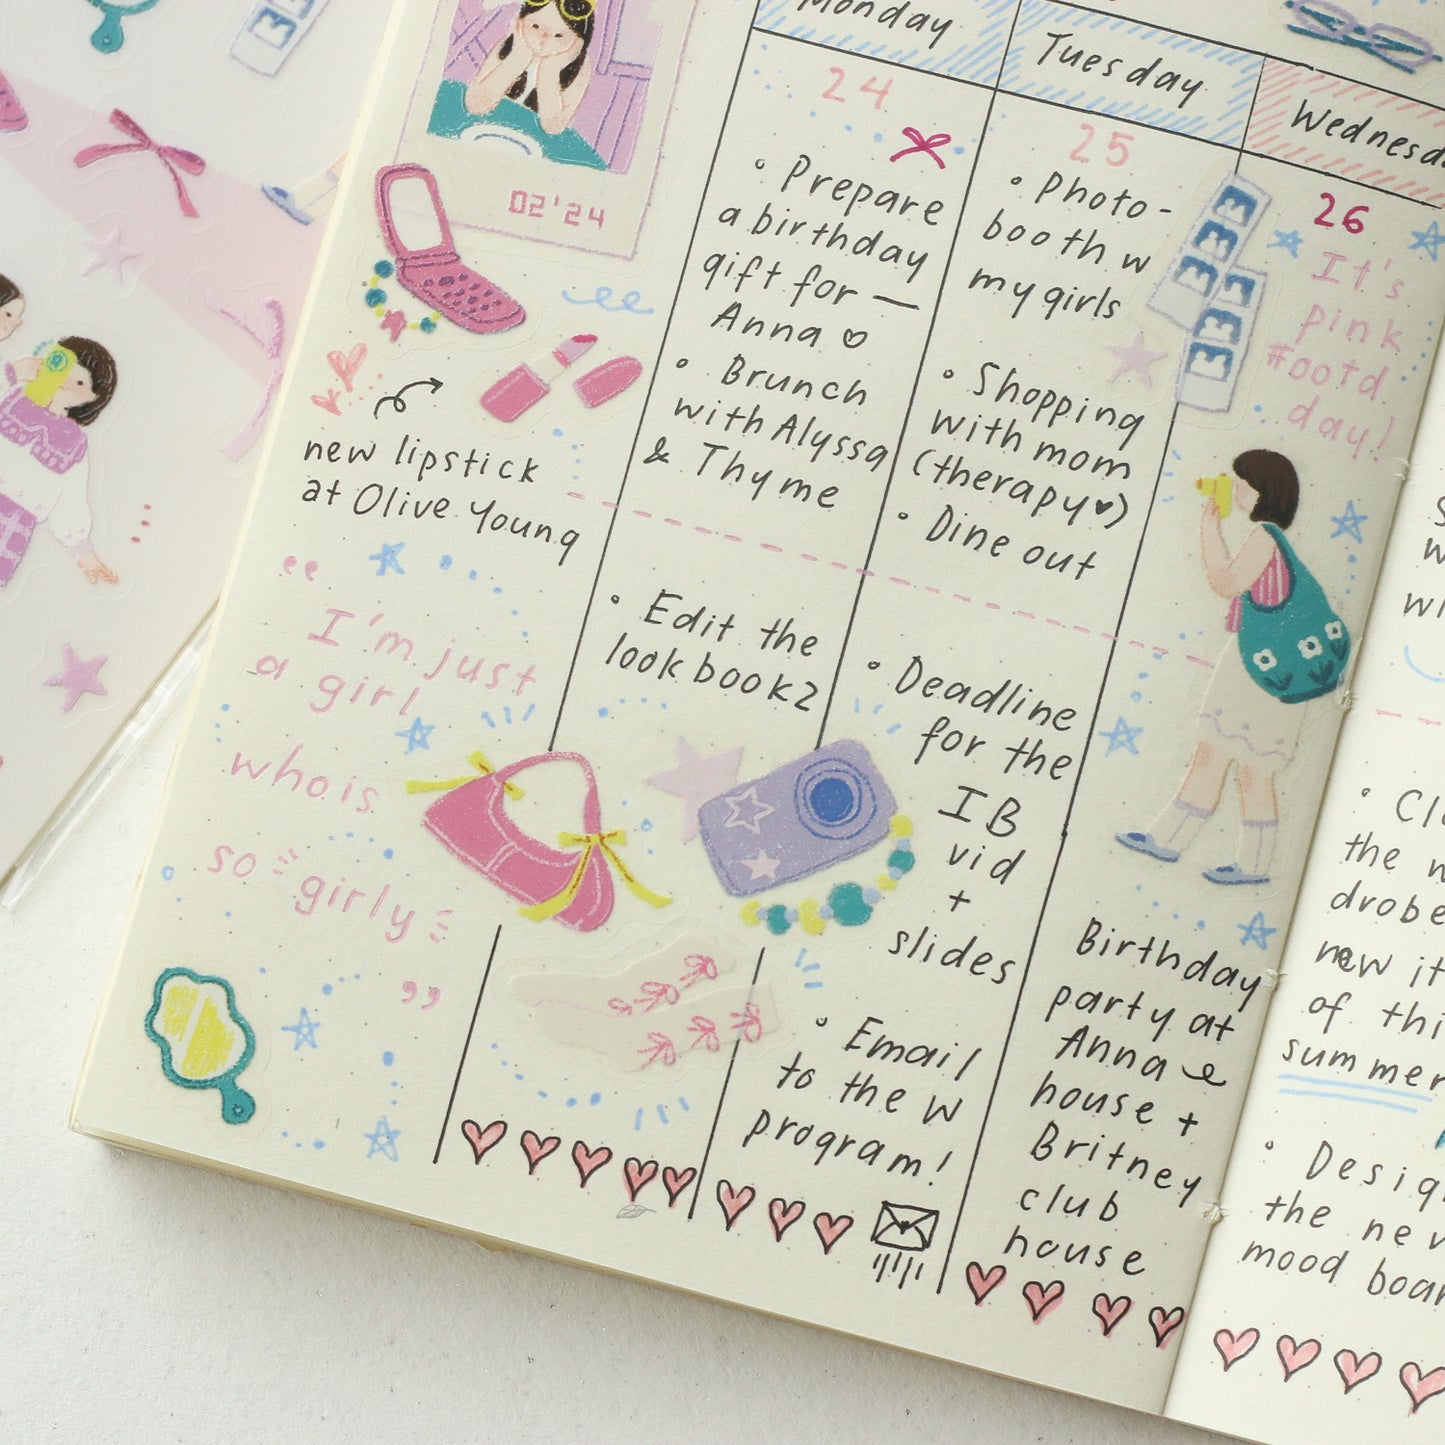 02'24
new lipstick
at Olive Young
“
I'm just
a girl
who is
so girly
”
Monday
24
• Prepare
a birthday
gift for —
Anna ♡
• Brunch
with Alyssa
& Thyme
• Edit the
look book 2
Tuesday
25
• Photo-
booth w
my girls
• Shopping
with mom
(therapy♥)
• Dine out
• Deadline
for the
IB
vid
+
slides
• Email
to the w
program!
26
It's
pink
#ootd
day!
Birthday
party at
Anna e
house +
Britney
club
house
the
drobe
new
of
summer
the
mood